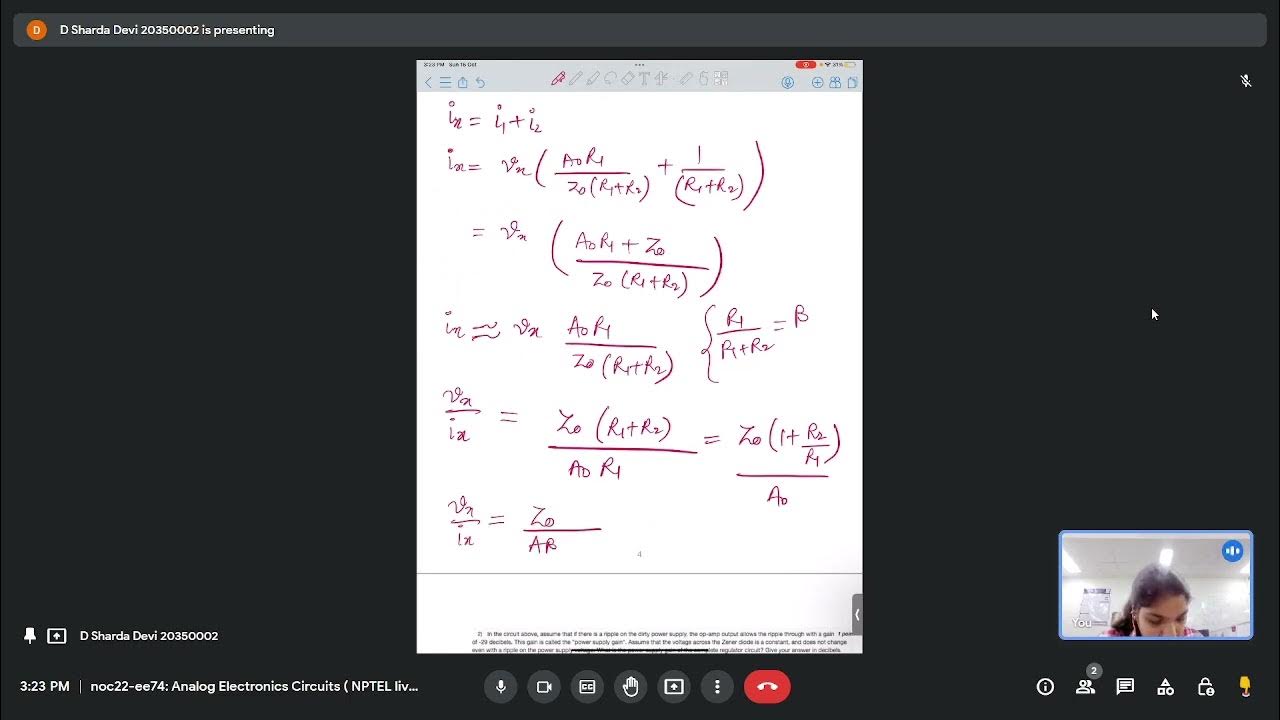 D
D Sharda Devi 20350002 is presenting
3:23 PM Sun 16 Oct
31%
iₓ = i₁ + i₂
iₓ = vₓ ( A₀R₁ / Z₀(R₁+R₂) + 1 / (R₁+R₂) )
= vₓ ( A₀R₁ + Z₀ / Z₀(R₁+R₂) )
iₓ ≈ vₓ A₀R₁ / Z₀(R₁+R₂) { R₁ / R₁+R₂ = β
vₓ / iₓ = Z₀(R₁+R₂) / A₀R₁ = Z₀(1+R₂/R₁) / A₀
vₓ / iₓ = Z₀ / Aβ
4
2) In the circuit above, assume that if there is a ripple on the dirty power supply, the op-amp output allows the ripple through with a gain 1 point
of -29 decibels. This gain is called the "power supply gain". Assume that the voltage across the Zener diode is a constant, and does not change
even with a ripple on the power supply voltage. What is the power supply gain of the complete regulator circuit? Give your answer in decibels.
You
D Sharda Devi 20350002
3:23 PM | noc22-ee74: Analog Electronics Circuits ( NPTEL liv...
2